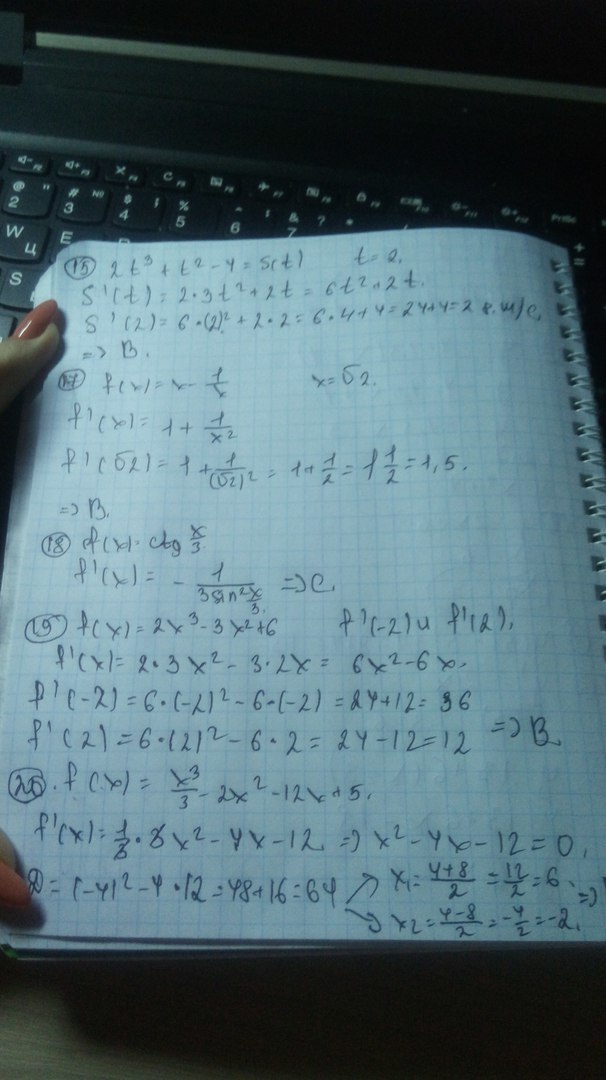 15 2t³ + t² - 4 = S(t) t = 2.
S'(t) = 2·3t² + 2t = 6t² + 2t.
S'(2) = 6·(2)² + 2·2 = 6·4+4 = 24+4 = 28 м/с.
=> B.
17 f(x) = x - 1/x x = √2.
f'(x) = 1 + 1/x²
f'(√2) = 1 + 1/(√2)² = 1 + 1/2 = 1 1/2 = 1,5.
=> B.
18 f(x) = ctg x/3
f'(x) = - 1/(3sin² x/3) => C.
19 f(x) = 2x³ - 3x² + 6 f'(-2) и f'(2).
f'(x) = 2·3x² - 3·2x = 6x² - 6x.
f'(-2) = 6·(-2)² - 6·(-2) = 24+12 = 36
f'(2) = 6·(2)² - 6·2 = 24-12 = 12 => B
f(x) = x³/3 - 2x² - 12x + 5.
f'(x) = 1/3·3x² - 4x - 12 => x² - 4x - 12 = 0.
D = (-4)² - 4·12 = 48+16 = 64 x₁ = (4+8)/2 = 12/2 = 6. =>
x₂ = (4-8)/2 = -4/2 = -2.